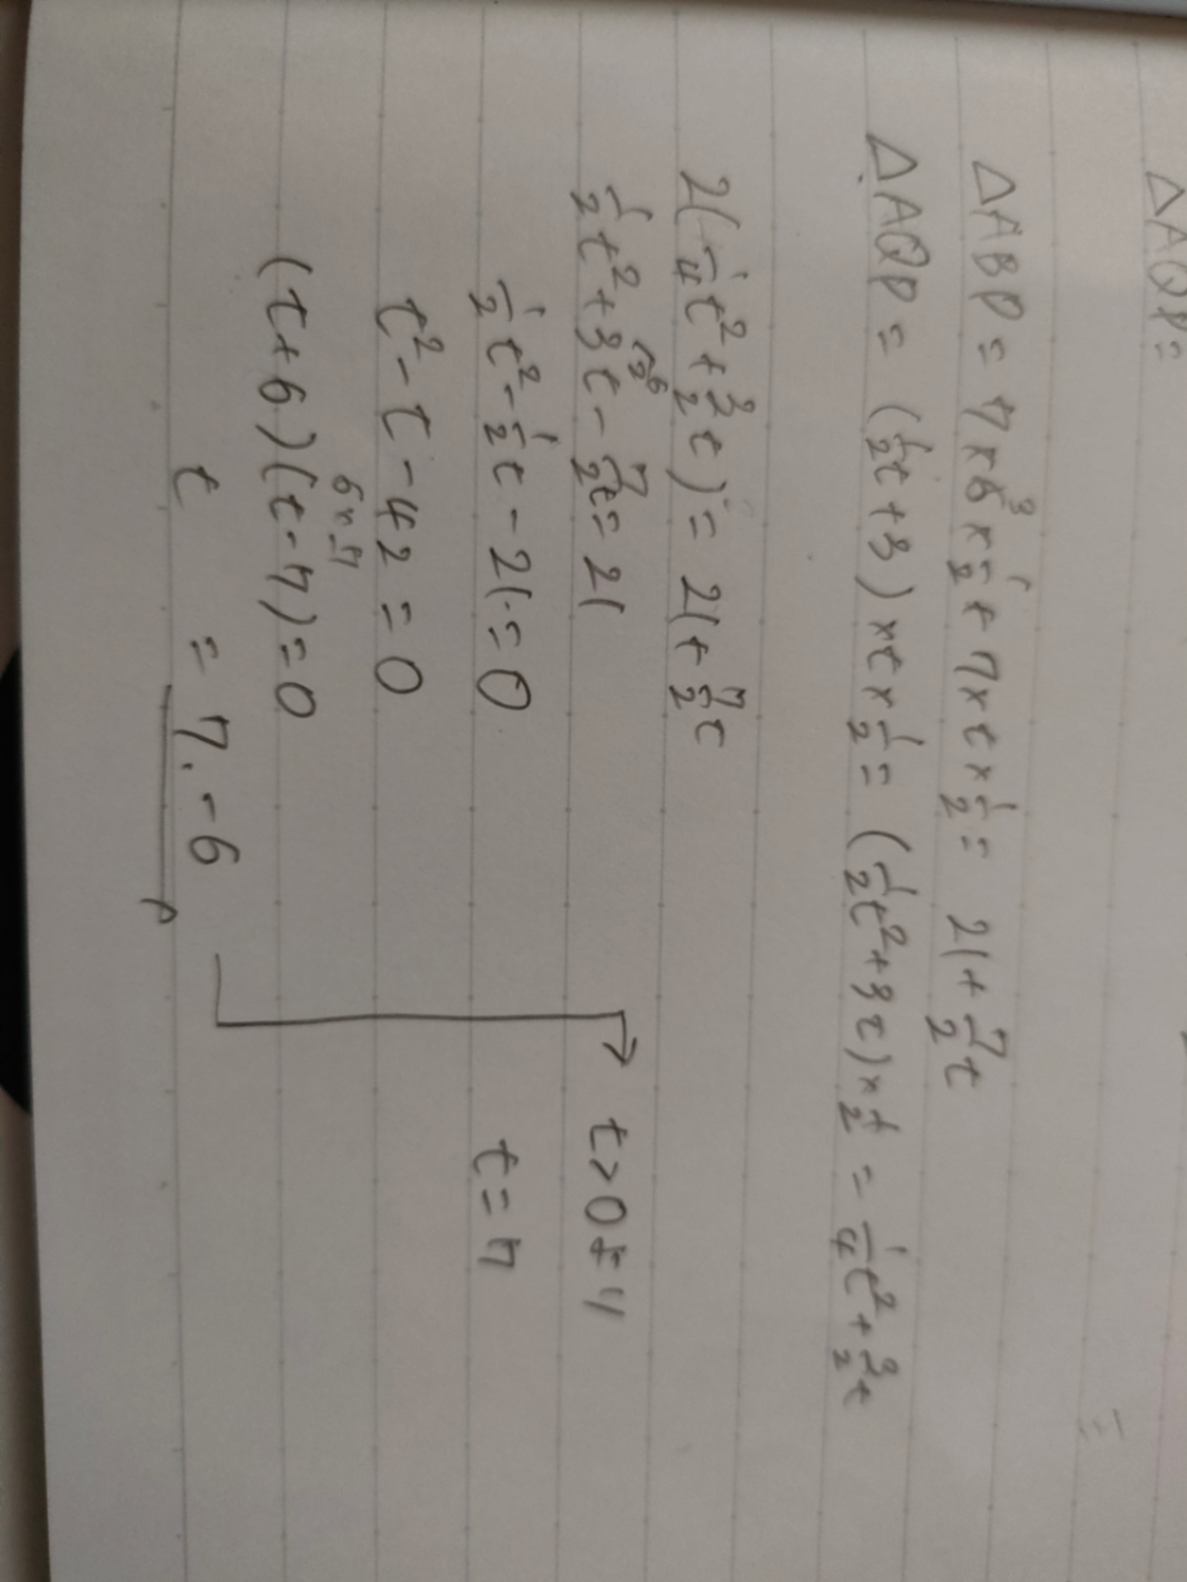 △AQP=
=
△ABP = 7×6×1/2 + 7×t×1/2 = 21+7/2t
3
△AQP = (1/2t+3)×t×1/2 = (1/2t²+3t)×1/2 = 1/4t²+3/2t
2(1/4t²+3/2t)= 21+7/2t
1/2t²+3t-7/2t= 21
1/2t²-1/2t-21=0
t²-t-42=0
6×-7
(t+6)(t-7)=0
t = 7.-6
t>0より
t=7